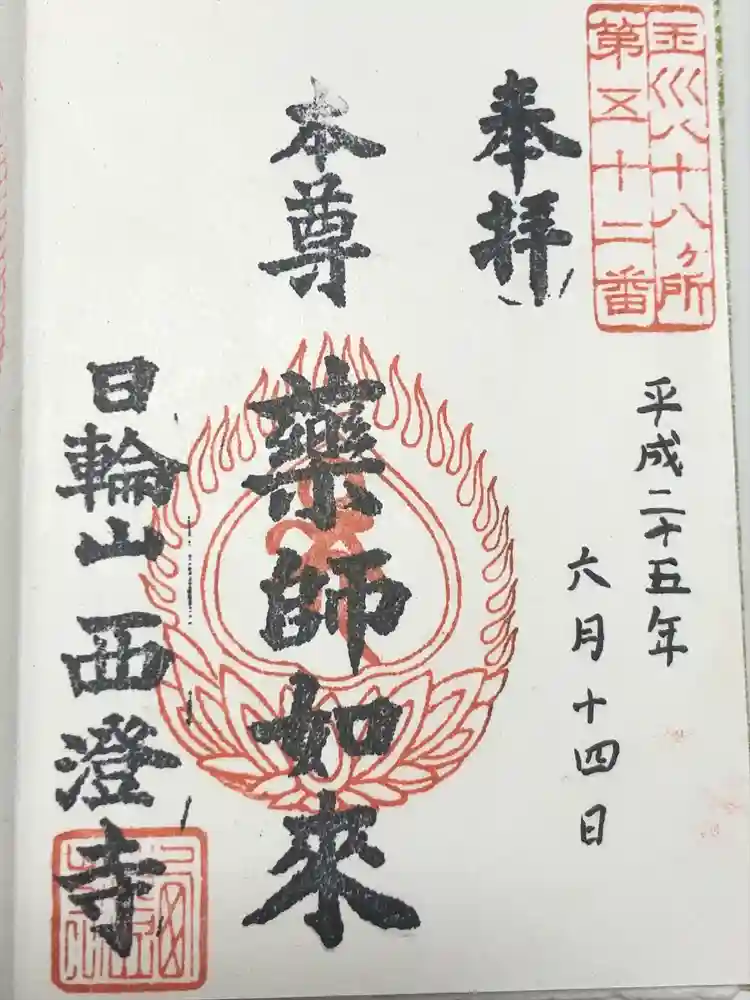 玉川八十八ヶ所
第五十二番
奉拝
平成二十五年
六月十四日
本尊
藥師如來
日輪山 西澄寺